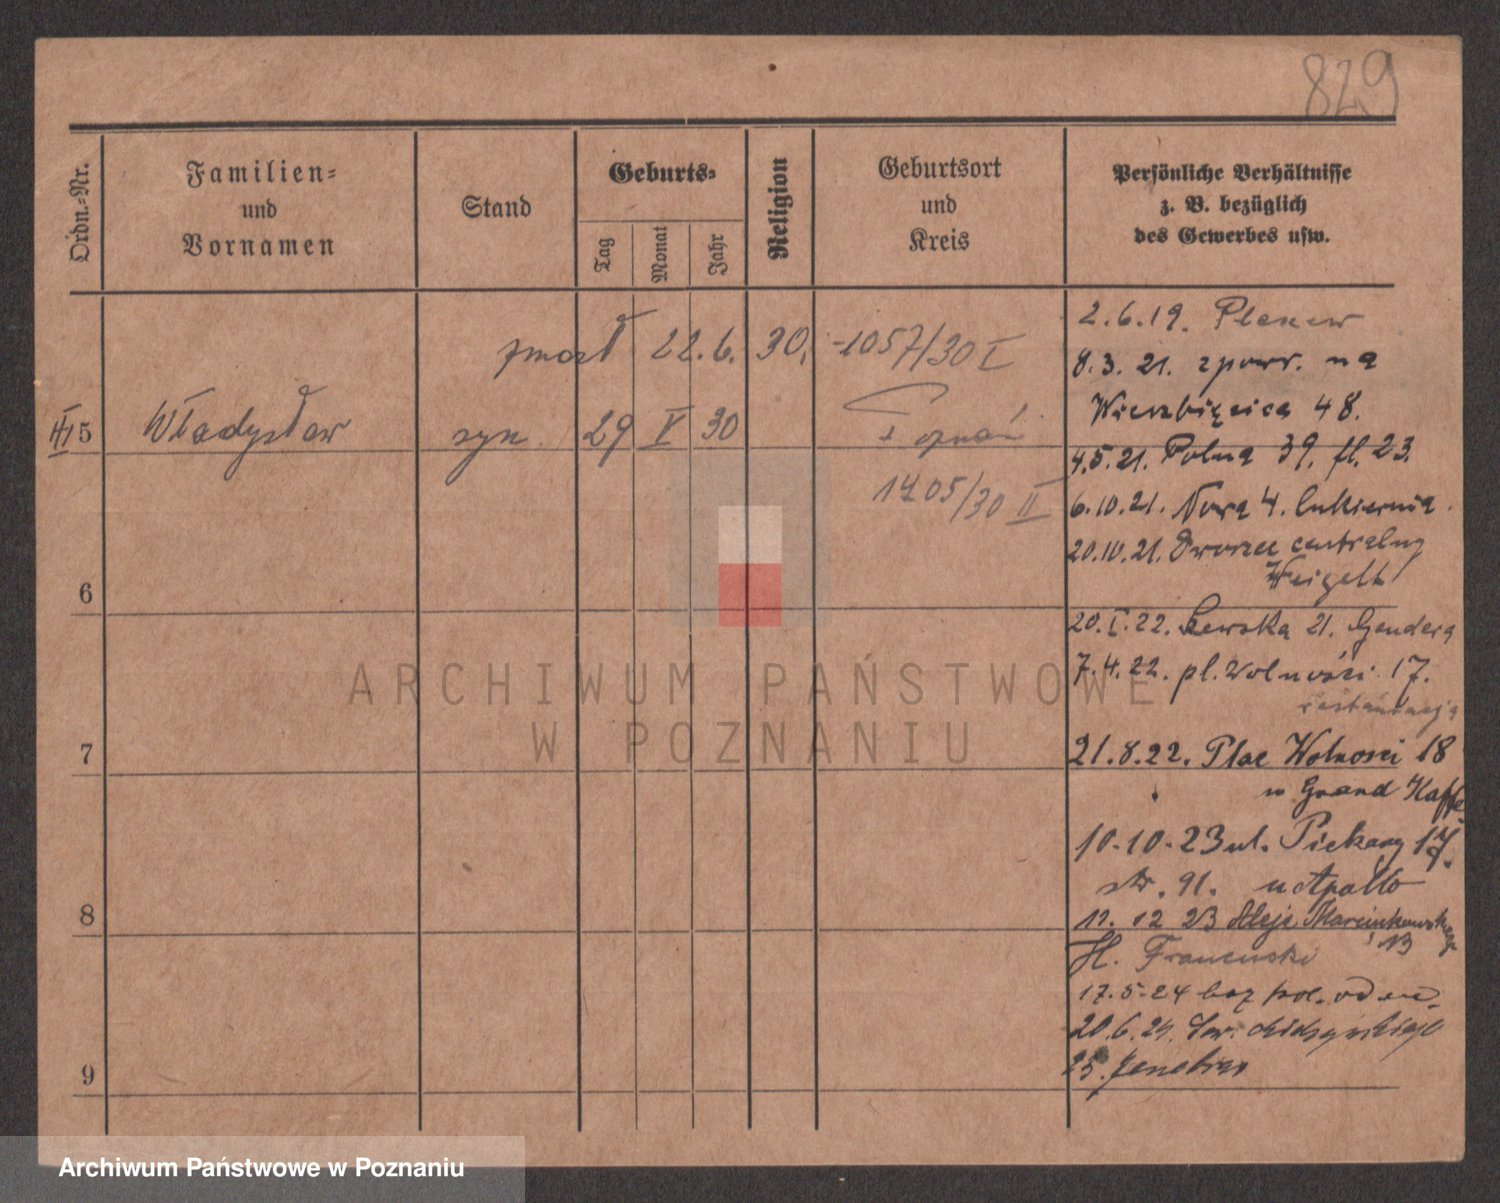 829
Ordn.-Nr.
Familien-
und
Vornamen
Stand
Geburts-
Tag
Monat
Jahr
Religion
Geburtsort
und
Kreis
Persönliche Verhältnisse
z. B. bezüglich
des Gewerbes usw.
zmarł 22.6. 30. -1057/30 I
III 5 Władysław syn 29 V 30 Poznań
1405/30 II
6
7
8
9
2.6.19.
8.3.21. zpowr. na
Wierzbięcice 48.
4.5.21. Polna 39. fl. 23.
6.10.21. Nowa 4. Cukiernia.
20.10.21. Dworzec centralny
Weigelt
20.I.22. 21.
7.4.22. pl. Wolności 17.
restauracja
21.8.22. Plac Wolności 18
w Grand Kaffe
10-10-23 ul. Piekary 17.
91. u Apollo
12 23 Aleje Marcinkowskiego
13
H. Francuski
17.5.24
20.6.24. Św.
25.
ARCHIWUM PAŃSTWOWE
W POZNANIU
Archiwum Państwowe w Poznaniu